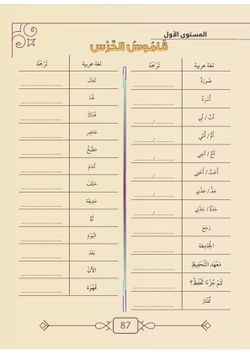 المستوى الأول
قَامُوسُ الدَّرْسِ
لغة عربية	ترجمة	لغة عربية	ترجمة
صُورَةٌ	تَعَالَ
أُسْرَةٌ	هُنَا
أَبٌ / أَبِي	هُنَاكَ
أُمٌّ / أُمِّي	حَاضِر
أَخٌ / أَخِي	مَطْبَخٌ
أُخْتٌ / أُخْتِي	أَمَامَ
جَدٌّ / جَدِّي	خَلْفَ
جَدَّةٌ / جَدَّتِي	حَدِيقَة
رَجَعَ
الجَامِعَة	اليَوْمَ
مَعْهَدُ التَّحْفِيظِ	بَعْدَ
كَمْ جُزْءًا تَحْفَظُ؟	الآنَ
مُمْتَاز	قَهْوَة
87